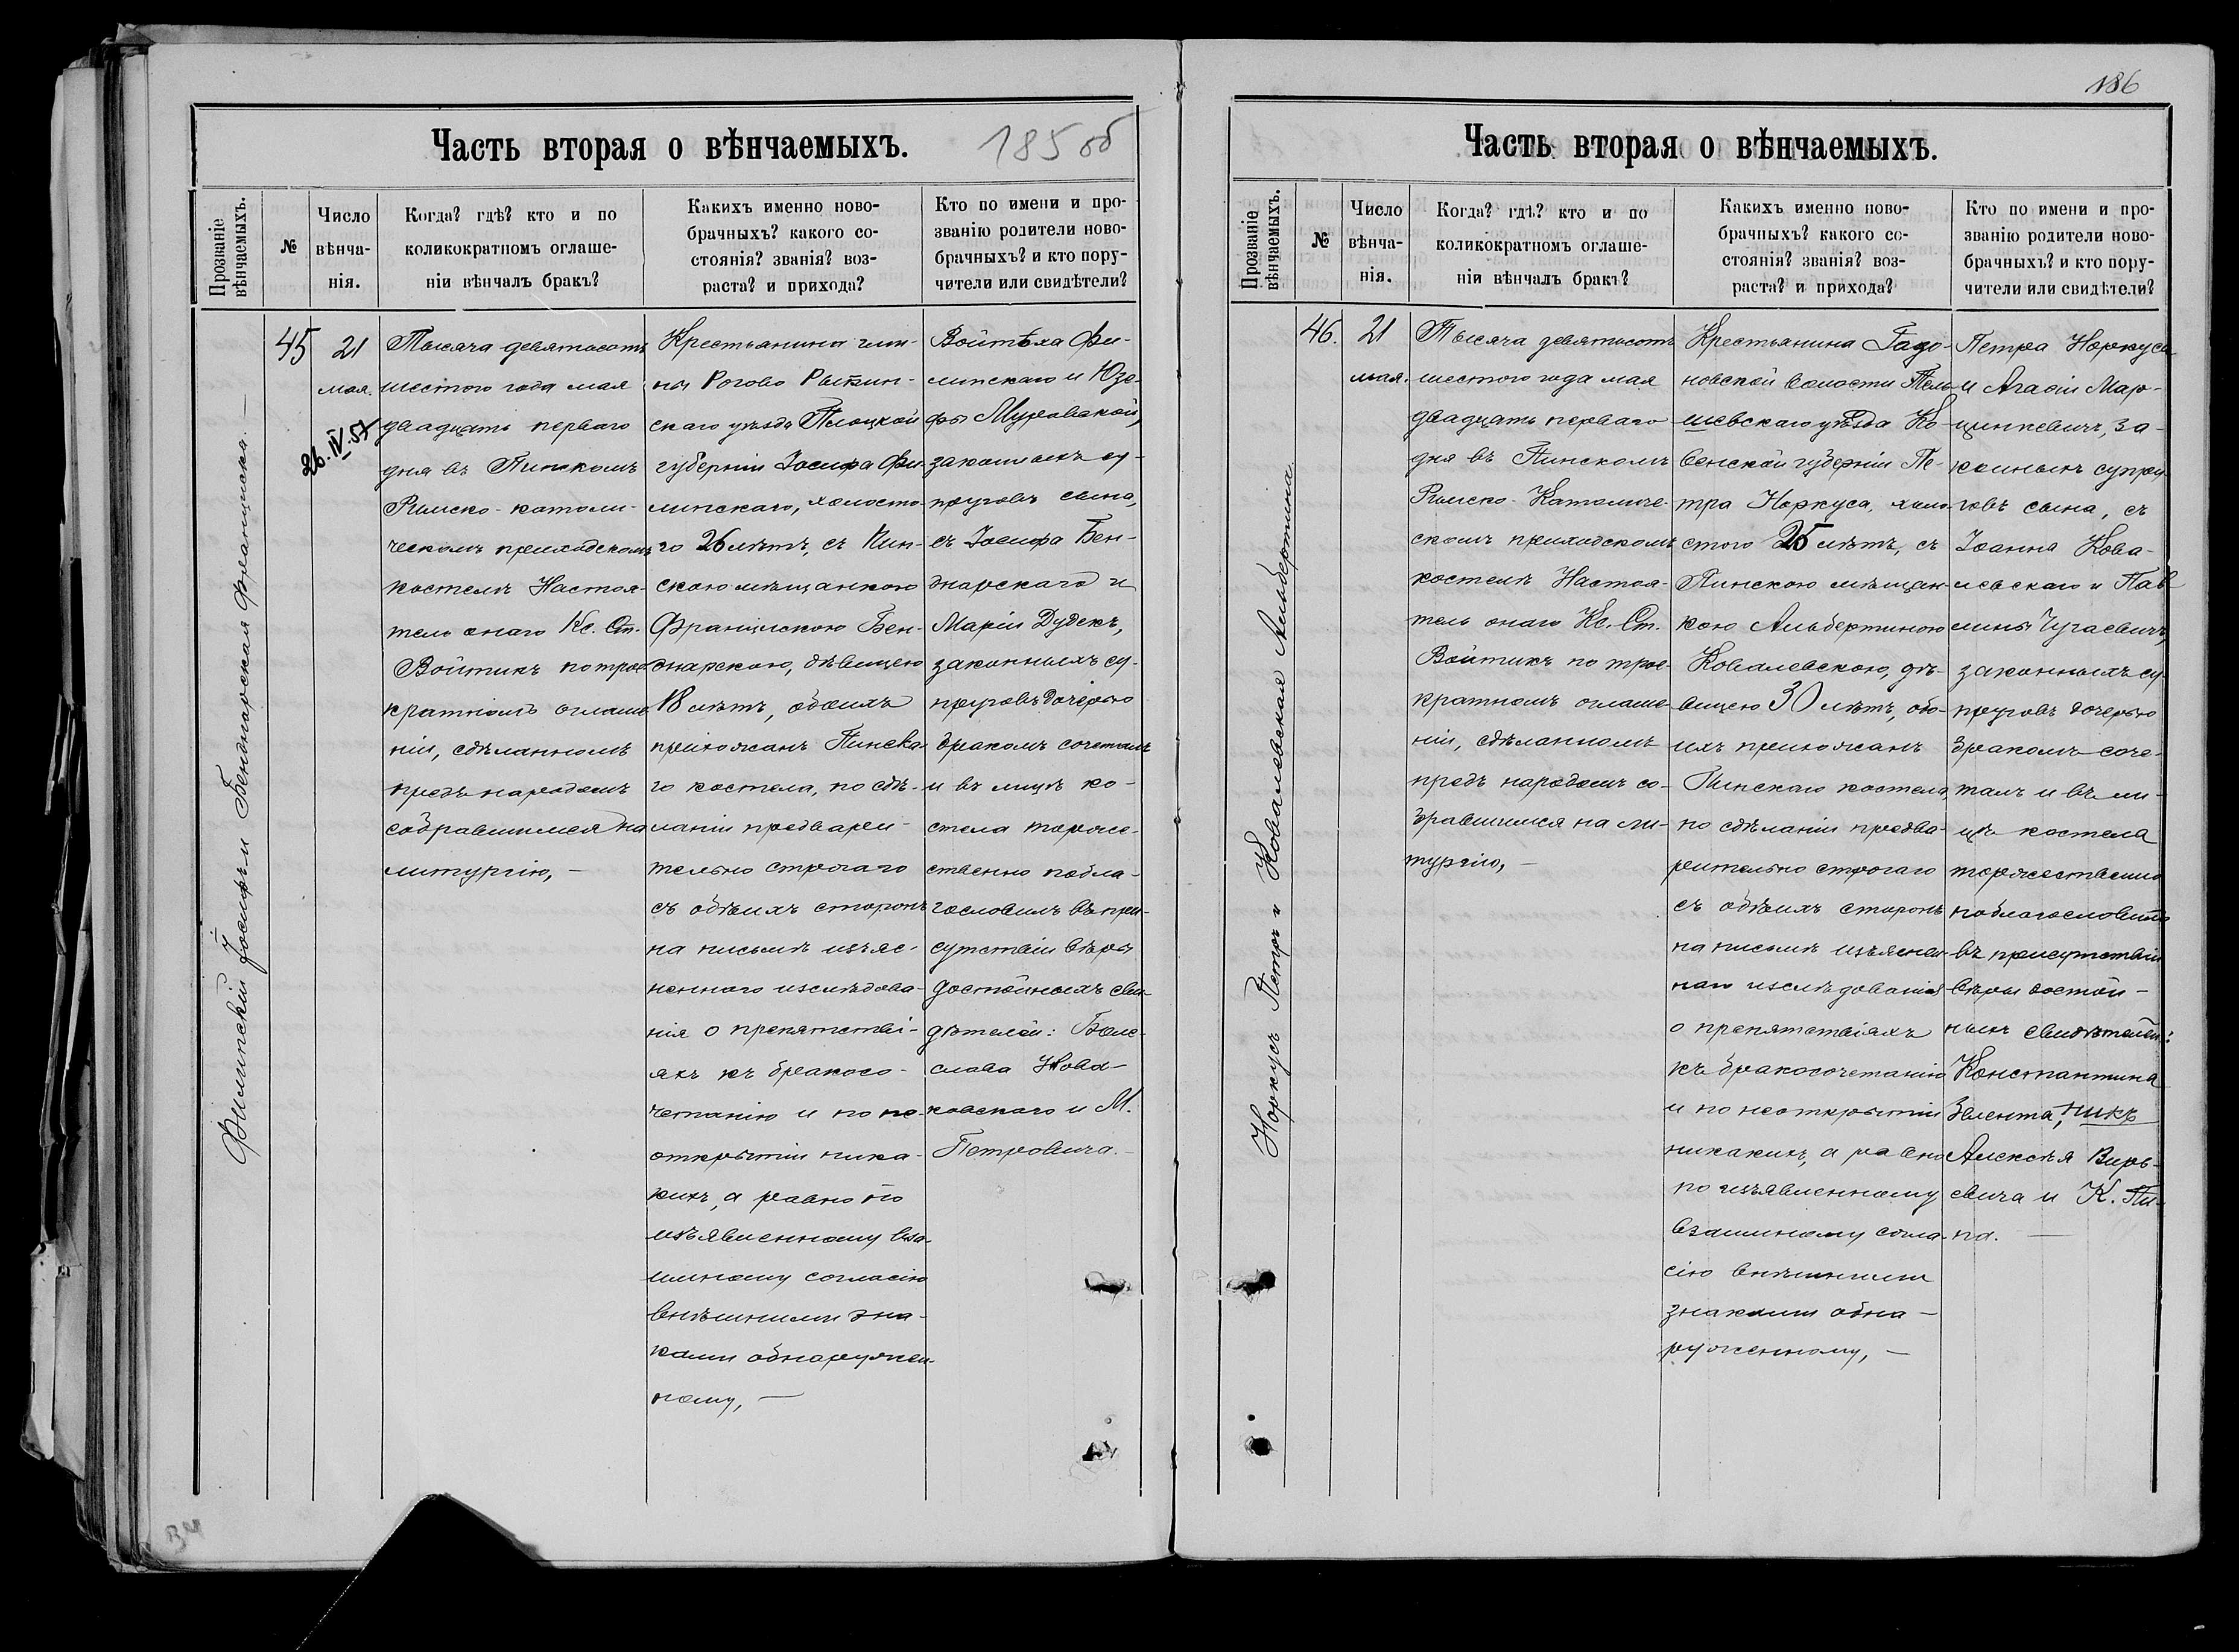 185 об
Часть вторая о вѣнчаемыхъ.
Прозваніе
вѣнчаемыхъ.
№
Число
вѣнча-
нія.
Когда? гдѣ? кто и по
коликократномъ оглаше-
ніи вѣнчалъ бракъ?
Каких​ъ именно ново-
брачныхъ? какого со-
стоянія? званія? воз-
раста? и прихода?
Кто по имени и про-
званію родители ново-
брачныхъ? и кто пору-
чители или свидѣтели?
Филинскій Іосифъ и Беднарская Францишка. —
45
21
мая.
26.IV.57
Тысяча девятьсотъ
шестого года мая
двадцать перваго
дня въ Пинскомъ
Римско-католи-
ческомъ приходскомъ
костелѣ Настоя-
тель онаго Кс. Ст.
Войтикъ по трое-
кратномъ оглаше-
ніи, сдѣланномъ
предъ народомъ
собравшимся на
литургію, —
Крестьянина гми-
ны Рогово Рыпин-
скаго уѣзда Плоцкой
губерніи Іосифа Фи-
линскаго, холосто-
го 26 лѣтъ, съ Пин-
скою мѣщанкою
Францискою Бен-
днарскою, дѣвицею
18 лѣтъ, обоихъ
прихожанъ Пинска-
го костела, по сдѣ-
ланіи предвари-
тельно строгаго
съ обѣихъ сторонъ
на письмѣ изъяс-
неннаго изслѣдова-
нія о препятстві-
яхъ къ бракосо-
четанію и по не-
открытіи ника-
кихъ, а равно по
изъявленному вза-
имному согласію
внѣшними зна-
ками обнаружен-
ному, —
Войтѣха Фи-
линскаго и Юзе-
фы Муравской,
законныхъ су-
пруговъ сына,
съ Іосифа Бен-
днарскаго и
Маріи Дудекъ,
законныхъ су-
пруговъ дочерью
бракомъ сочеталъ
и въ лицѣ ко-
стела торже-
ственно побла-
гословилъ въ при-
сутствіи вѣры
достойныхъ сви-
дѣтелей: Боле-
слава Нова-
ковскаго и М.
Петровича. —
186
Часть вторая о вѣнчаемыхъ.
Прозваніе
вѣнчаемыхъ.
№
Число
вѣнча-
нія.
Когда? гдѣ? кто и по
коликократномъ оглаше-
ніи вѣнчалъ бракъ?
Какихъ именно ново-
брачныхъ? какого со-
стоянія? званія? воз-
раста? и прихода?
Кто по имени и про-
званію родители ново-
брачныхъ? и кто пору-
чители или свидѣтели?
Норкусъ Петръ и Ковалевская Альбертина.
46.
21
мая.
Тысяча девятьсотъ
шестого года мая
двадцать перваго
дня въ Пинскомъ
Римско-Католиче-
скомъ приходскомъ
костелѣ Настоя-
тель онаго Кс. Ст.
Войтикъ по трое-
кратномъ оглаше-
ніи, сдѣланномъ
предъ народомъ со-
бравшимся на ли-
тургію, —
Крестьянина Гадо-
новской волости Тель-
шевскаго уѣзда Ко-
венской губерніи Пе-
тра Норкуса, холо-
стого 25 лѣтъ, съ
Пинскою мѣщан-
кою Альбертиною
Ковалевскою, дѣ-
вицею 30 лѣтъ, обо-
ихъ прихожанъ
Пинскаго костела,
по сдѣланіи предва-
рительно строгаго
съ обѣихъ сторонъ
на письмѣ изъяснен-
наго изслѣдованія
о препятствіяхъ
къ бракосочетанію
и по неоткрытіи
никакихъ, а равно
по изъявленному
взаимному согла-
сію внѣшними
знаками обна-
руженному, —
Петра Норкуса
и Агасіи Мар-
цинкевичъ, за-
конныхъ супру-
говъ сына, съ
Іоанна Кова-
левскаго и Пав-
лины Чугаевичъ,
законныхъ су-
пруговъ дочерью
бракомъ соче-
талъ и въ ли-
цѣ костела
торжественно
поблагословилъ
въ присутствіи
вѣры достой-
ныхъ свидѣтелей:
Константина
Алексѣя Вирь-
евича и К. Пи-
па. —